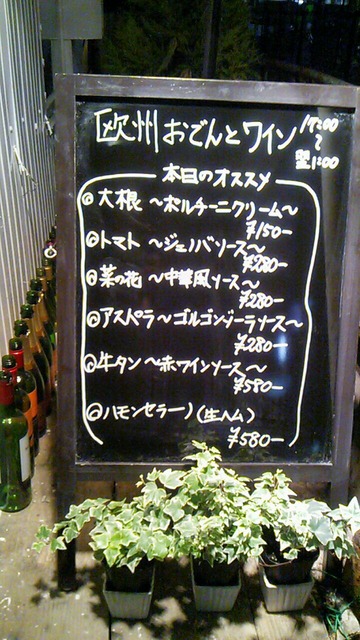 欧州おでんとワイン 17:00
〜
翌1:00
本日のオススメ
◎大根 〜ポルチーニクリーム〜
¥150-
◎トマト 〜ジェノバソース〜
¥280-
◎菜の花 〜中華風ソース〜
¥280-
◎アスパラ〜ゴルゴンゾーラソース〜
¥280-
◎牛タン 〜赤ワインソース〜
¥580-
◎ハモンセラーノ(生ハム)
¥580-